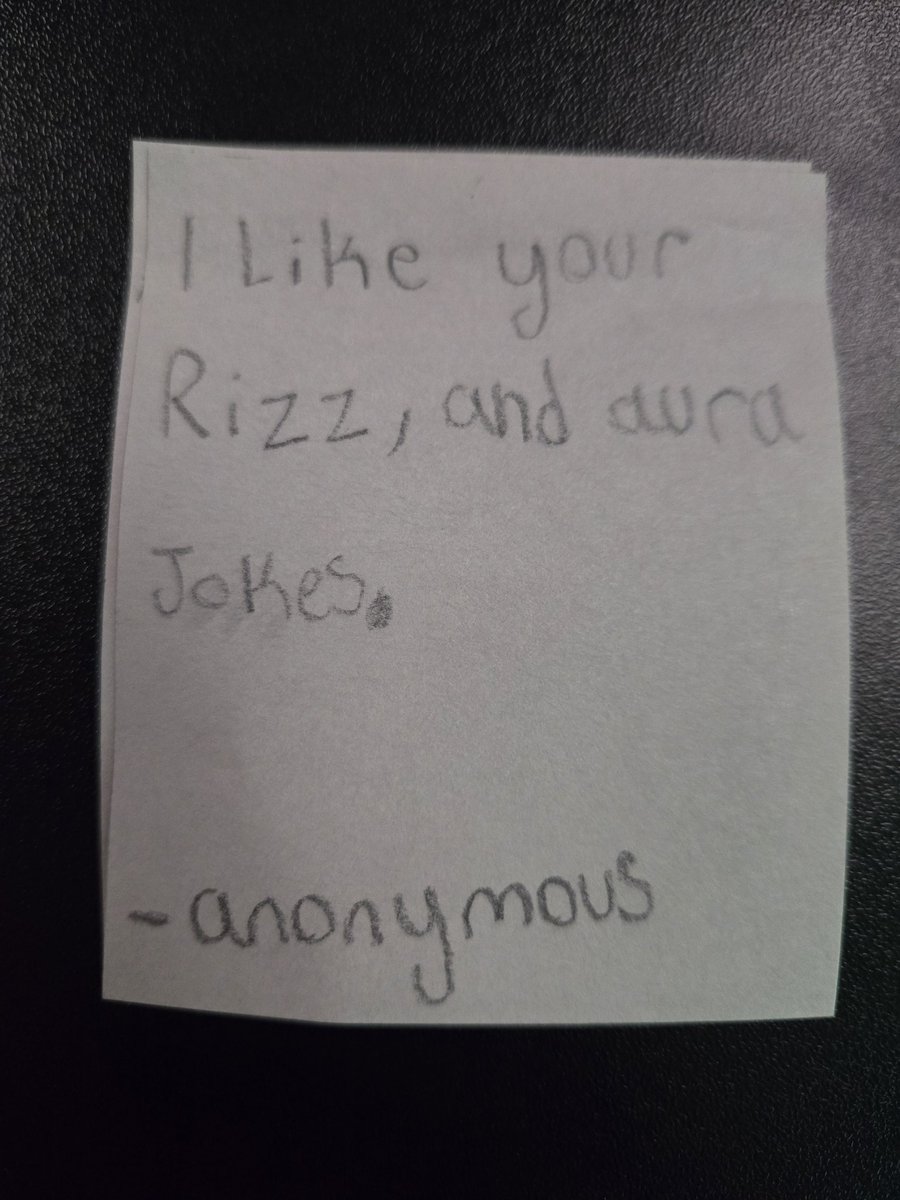 I Like your
Rizz, and aura
Jokes.
-anonymous